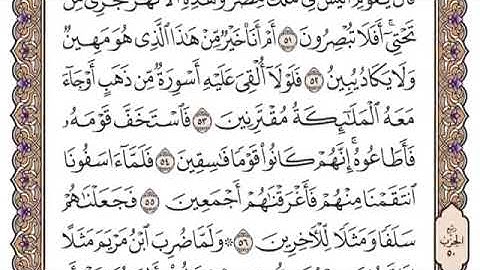 قَالَ يَٰقَوْمِ أَلَيْسَ لِى مُلْكُ مِصْرَ وَهَٰذِهِ ٱلْأَنْهَٰرُ تَجْرِى مِن
تَحْتِىٓ ۖ أَفَلَا تُبْصِرُونَ ٥١ أَمْ أَنَا۠ خَيْرٌ مِّنْ هَٰذَا ٱلَّذِى هُوَ مَهِينٌ
وَلَا يَكَادُ يُبِينُ ٥٢ فَلَوْلَآ أُلْقِىَ عَلَيْهِ أَسْوِرَةٌ مِّن ذَهَبٍ أَوْ جَآءَ
مَعَهُ ٱلْمَلَٰٓئِكَةُ مُقْتَرِنِينَ ٥٣ فَٱسْتَخَفَّ قَوْمَهُۥ
فَأَطَاعُوهُ ۚ إِنَّهُمْ كَانُوا۟ قَوْمًا فَٰسِقِينَ ٥٤ فَلَمَّآ ءَاسَفُونَا
ٱنتَقَمْنَا مِنْهُمْ فَأَغْرَقْنَٰهُمْ أَجْمَعِينَ ٥٥ فَجَعَلْنَٰهُمْ
سَلَفًا وَمَثَلًا لِّلْءَاخِرِينَ ٥٦ ۞ وَلَمَّا ضُرِبَ ٱبْنُ مَرْيَمَ مَثَلًا
ربع
الحزب
٥٠